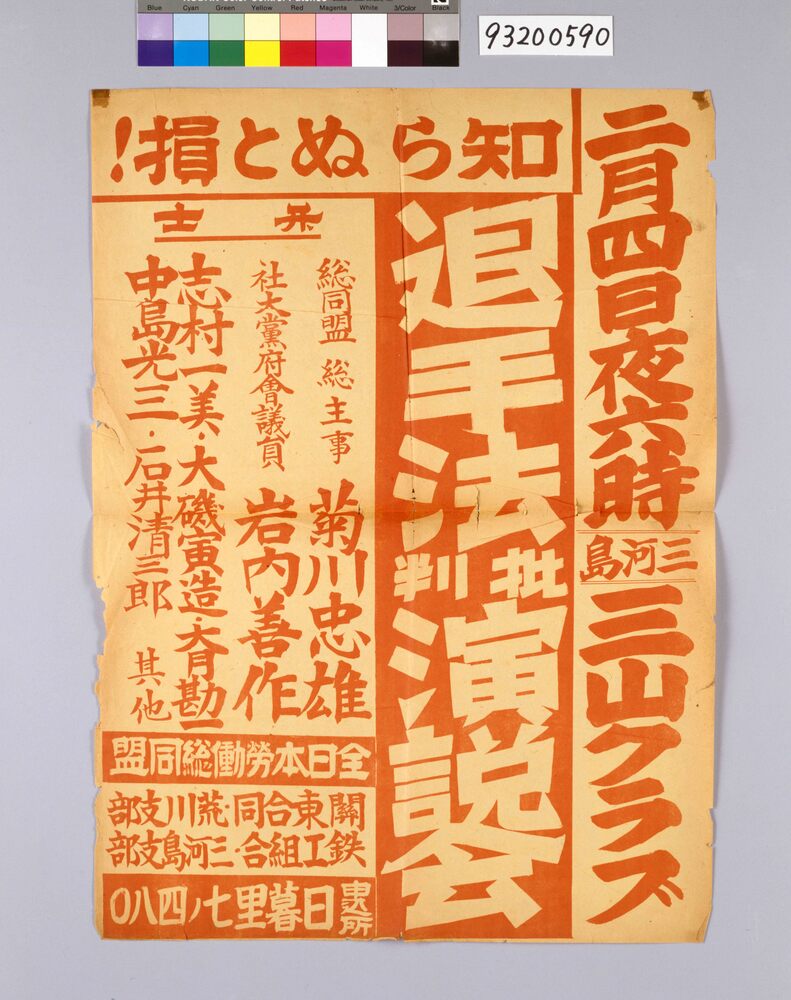 Blue Cyan Green Yellow Red Magenta White 3/Color Black
93200590
二月四日夜六時
三河島
三山クラブ
知らぬと損!
退手法批判演説会
弁士
総同盟総主事 菊川忠雄
社大黨府會議員 岩内善作
志村一美・大磯寅造・大月勘一
中島光三・石井清三郎 其他
全日本労働総同盟
關東合同・荒川支部
鉄工組合・三河島支部
日暮里七ノ四八〇